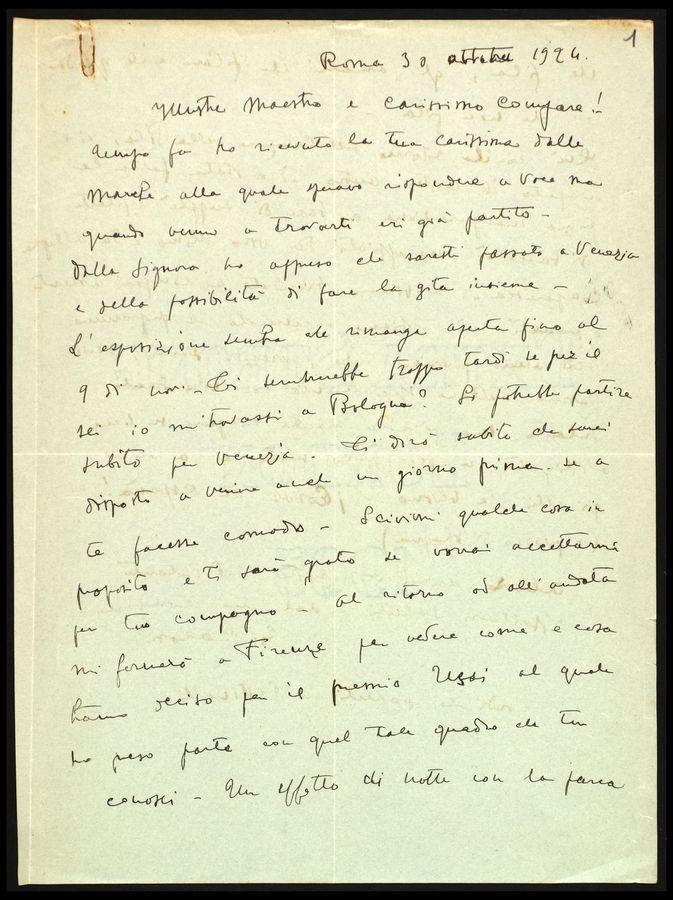 1
Roma 30 ottobre 1924.
Illustre Maestro e carissimo Compare!
tempo fa ho ricevuto la tua carissima dalle
Marche alla quale speravo rispondere a voce ma
quando venni a trovarti eri già partito -
Dalla Signora ho appreso che saresti passato a Venezia
e della possibilità di fare la gita insieme -
L'esposizione sembra che rimanga aperta fino al
9 di nov. - Ti sembrerebbe troppo tardi se pel il
sei io mi trovassi a Bologna? Si potrebbe partire
subito per Venezia. Ti dirò subito che sarei
disposto a venire anche un giorno prima. se a
te facesse comodo - Scivimi qualche cosa in
proposito e ti sarò grato se vorrai accettarmi
per tuo compagno - al ritorno od all'andata
mi fermerò a Firenze per vedere come e cosa
hanno deciso per il premio Ussi al quale
ho preso parte con quel tale quadro che tu
conosci - Un effetto di notte con la